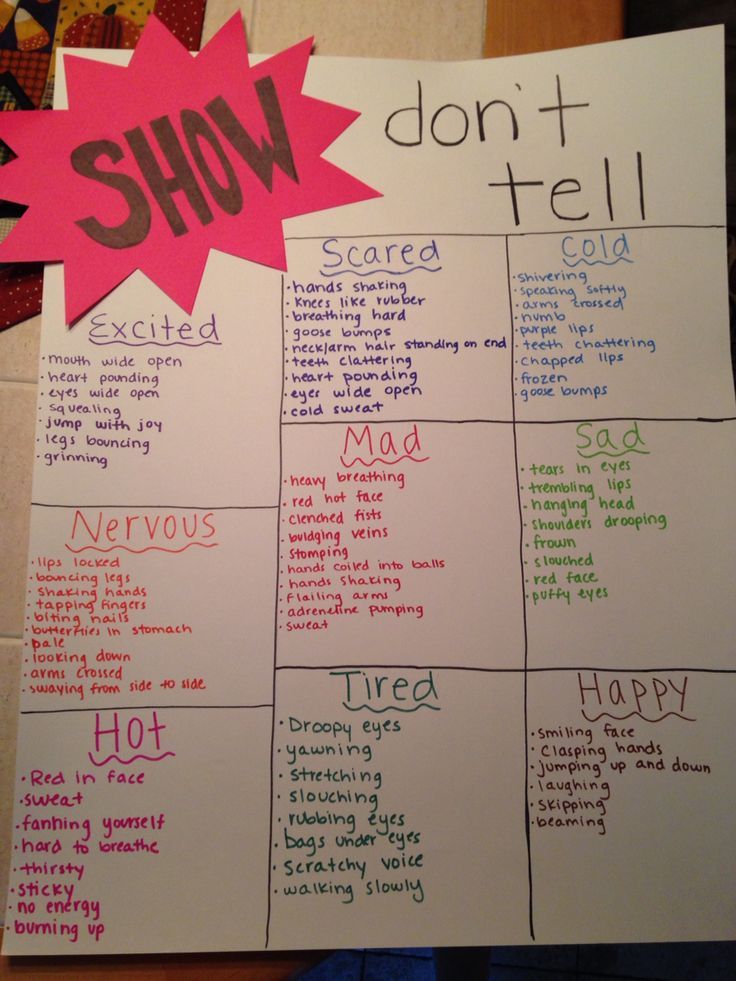 SHOW
don't
tell
Excited
· mouth wide open
· heart pounding
· eyes wide open
· squealing
· jump with joy
· legs bouncing
· grinning
Scared
· hands shaking
· knees like rubber
· breathing hard
· goose bumps
· neck/arm hair standing on end
· teeth clattering
· heart pounding
· eyes wide open
· cold sweat
Cold
· shivering
· speaking softly
· arms crossed
· numb
· purple lips
· teeth chattering
· chapped lips
· frozen
· goose bumps
Nervous
· lips locked
· bouncing legs
· shaking hands
· tapping fingers
· biting nails
· butterflies in stomach
· pale
· looking down
· arms crossed
· swaying from side to side
Mad
· heavy breathing
· red hot face
· clenched fists
· buldging veins
· stomping
· hands coiled into balls
· hands shaking
· flailing arms
· adreneline pumping
· sweat
Sad
· tears in eyes
· trembling lips
· hanging head
· shoulders drooping
· frown
· slouched
· red face
· puffy eyes
Hot
· Red in face
· sweat
· fanning yourself
· hard to breathe
· thirsty
· sticky
· no energy
· burning up
Tired
· Droopy eyes
· yawning
· stretching
· slouching
· rubbing eyes
· bags under eyes
· scratchy voice
· walking slowly
Happy
· smiling face
· clasping hands
· jumping up and down
· laughing
· skipping
· beaming